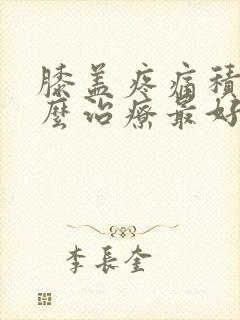 膝盖疼痛積
麼治療最好
李長奎